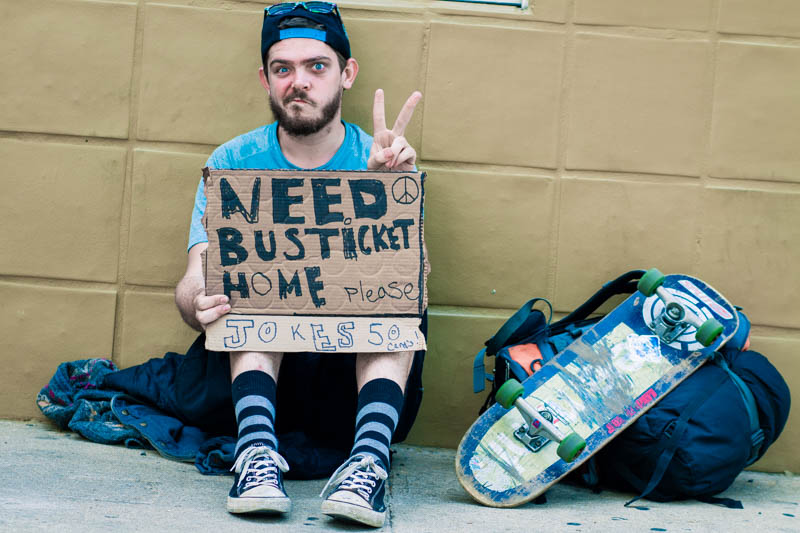 NEED
BUS TICKET
HOME please
JOKES 50
Cents